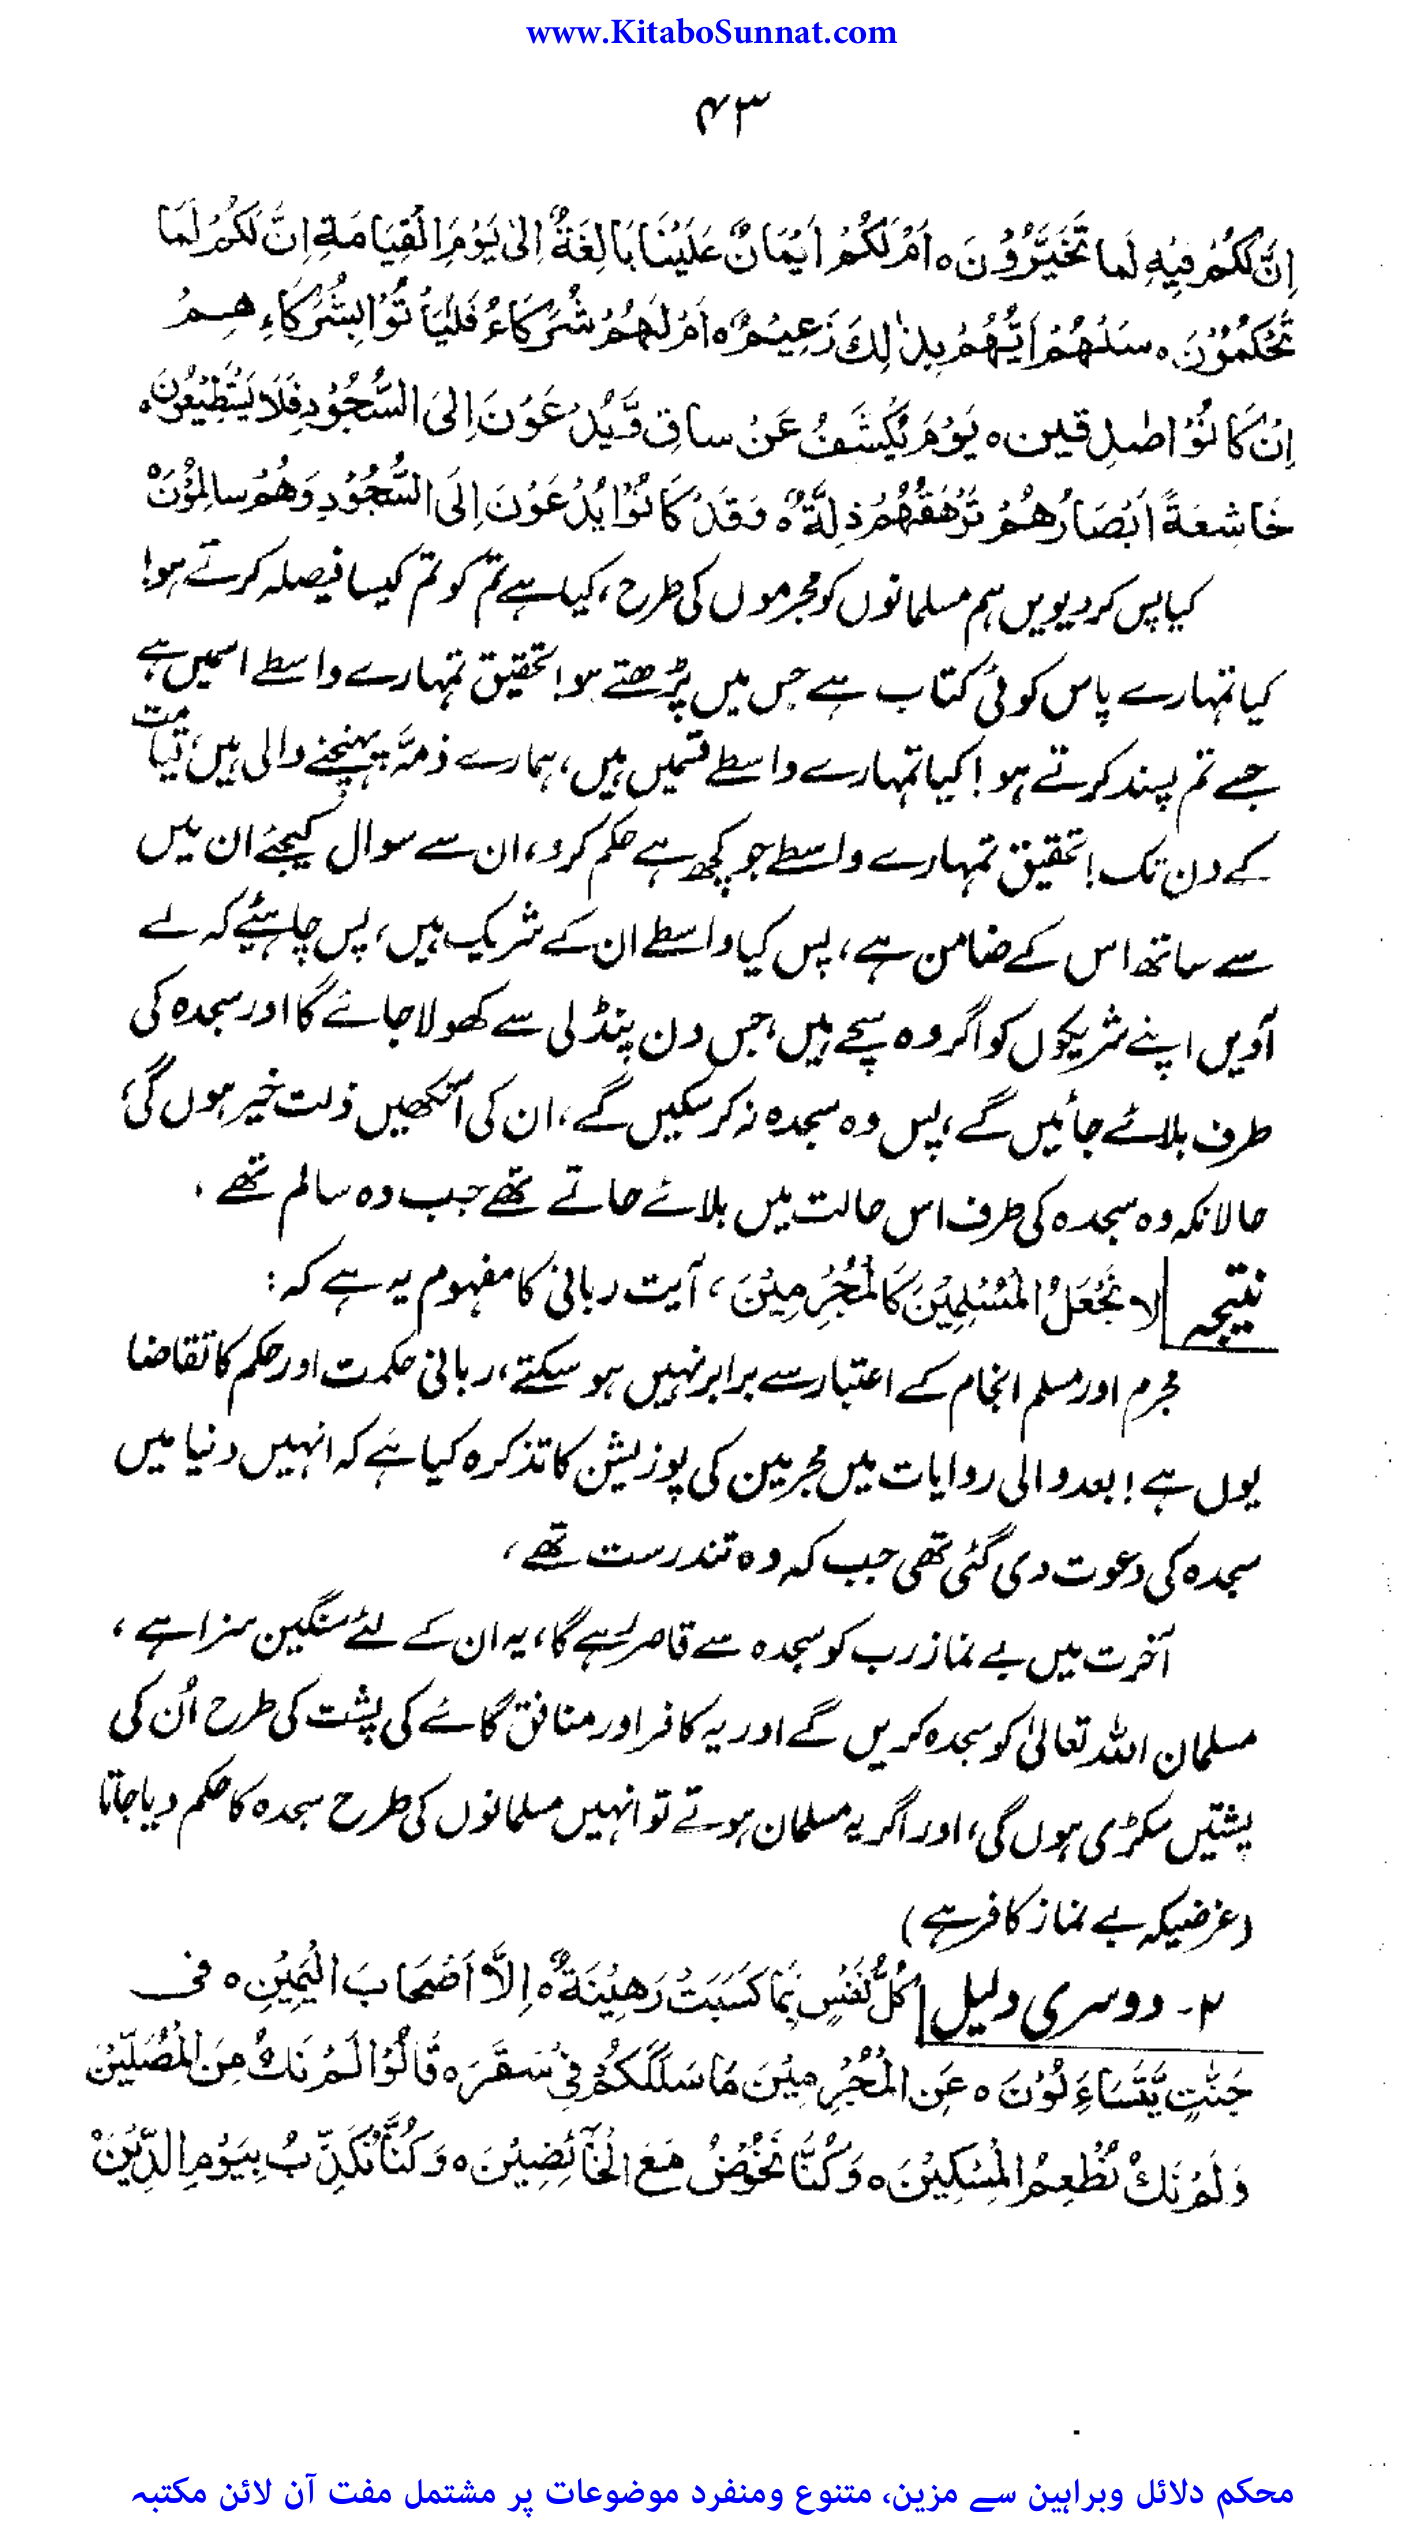 www.KitaboSunnat.com
۴۳
اِنَّ لَكُمْ فِيْهِ لَمَا تَخَيَّرُوْنَ ہ اَمْ لَكُمْ اَيْمَانٌ عَلَيْنَا بَالِغَةٌ اِلٰى يَوْمِ الْقِيَامَةِ اِنَّ لَكُمْ لَمَا
تَحْكُمُوْنَ ہ سَلْهُمْ اَيُّهُمْ بِذٰلِكَ زَعِيْمٌ ہ اَمْ لَهُمْ شُرَكَاءُ فَلْيَأْتُوْا بِشُرَكَاءِ هِمْ
اِنْ كَانُوْا صٰدِقِيْنَ ہ يَوْمَ يُكْشَفُ عَنْ سَاقٍ وَّيُدْعَوْنَ اِلَى السُّجُوْدِ فَلَا يَسْتَطِيْعُوْنَ ہ
خَاشِعَةً اَبْصَارُهُمْ تَرْهَقُهُمْ ذِلَّةٌ ہ وَقَدْ كَانُوْا يُدْعَوْنَ اِلَى السُّجُوْدِ وَهُمْ سَالِمُوْنَ
کیا پس کردیویں ہم مسلمانوں کو مجرموں کی طرح، کیا ہے تم کو تم کیسا فیصلہ کرتے ہو!
کیا تمہارے پاس کوئی کتاب ہے جس میں پڑھتے ہو! تحقیق تمہارے واسطے اسمیں ہے
جسے تم پسند کرتے ہو! کیا تمہارے واسطے قسمیں ہیں، ہمارے ذمّہ پہنچنے والی ہیں، قیامت
کے دن تک! تحقیق تمہارے واسطے جو کچھ ہے حکم کرو، ان سے سوال کیجئے ان میں
سے ساتھ اس کے ضامن ہے، پس کیا واسطے ان کے شریک ہیں، پس چاہیئے کہ لے
آویں اپنے شریکوں کو اگر وہ سچے ہیں، جس دن پنڈلی سے کھولا جائے گا اور سجدہ کی
طرف بلائے جائیں گے، پس وہ سجدہ نہ کرسکیں گے، ان کی آنکھیں ذلت خیر ہوں گی،
حالانکہ وہ سجدہ کی طرف اس حالت میں بلائے جاتے تھے جب وہ سالم تھے،
نتیجہ لا نَجْعَلُ الْمُسْلِمِيْنَ كَالْمُجْرِمِيْنَ، آیت ربانی کا مفہوم یہ ہے کہ:
مجرم اور مسلم انجام کے اعتبار سے برابر نہیں ہو سکتے، ربانی حکمت اور حکم کا تقاضا
یوں ہے! بعد والی روایات میں مجرمین کی پوزیشن کا تذکرہ کیا ہے کہ انہیں دنیا میں
سجدہ کی دعوت دی گئی تھی جب کہ وہ تندرست تھے،
آخرت میں بے نماز رب کو سجدہ سے قاصر رہے گا، یہ ان کے لئے سنگین سزا ہے،
مسلمان اللہ تعالیٰ کو سجدہ کریں گے اور یہ کافر اور منافق گائے کی پشت کی طرح اُن کی
پشتیں سکڑی ہوں گی، اور اگر یہ مسلمان ہوتے تو انہیں مسلمانوں کی طرح سجدہ کا حکم دیا جاتا
(غرضیکہ بے نماز کافر ہے)
۲۔ دوسری دلیل كُلُّ نَفْسٍ بِمَا كَسَبَتْ رَهِيْنَةٌ ہ اِلَّا اَصْحَابَ الْيَمِيْنِ ہ فِى
جَنّٰتٍ يَّتَسَاءَلُوْنَ ہ عَنِ الْمُجْرِمِيْنَ مَا سَلَكَكُمْ فِيْ سَقَرَ ہ قَالُوْا لَمْ نَكُ مِنَ الْمُصَلِّيْنَ
وَلَمْ نَكُ نُطْعِمُ الْمِسْكِيْنَ ہ وَكُنَّا نَخُوْضُ مَعَ الْخَآئِضِيْنَ ہ وَكُنَّا نُكَذِّبُ بِيَوْمِ الدِّيْنَ
محکم دلائل وبراہین سے مزین، متنوع ومنفرد موضوعات پر مشتمل مفت آن لائن مکتبہ